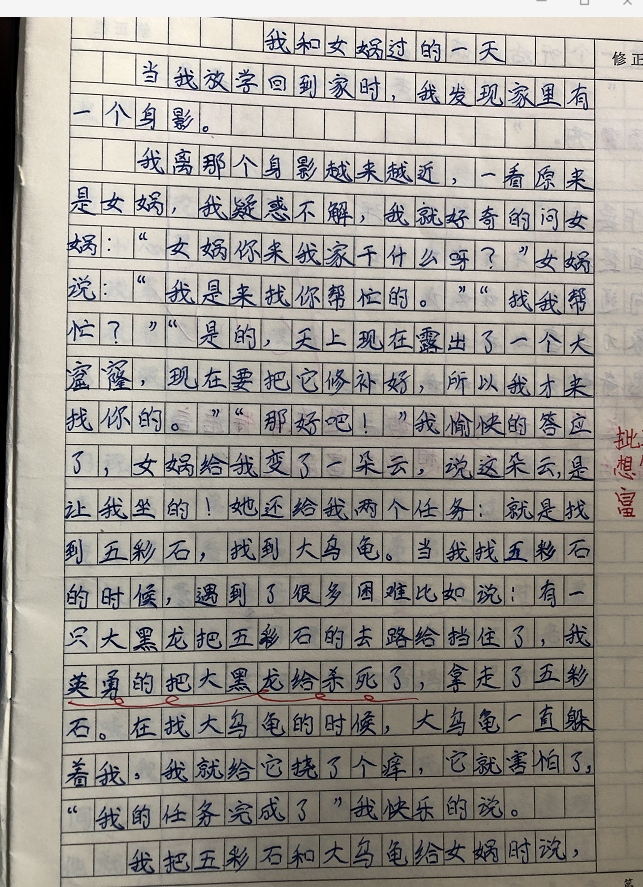 我和女娲过的一天
修正
当我放学回到家时，我发现家里有
一个身影。
我离那个身影越来越近，一看原来
是女娲，我疑惑不解，我就好奇的问女
娲：“女娲你来我家干什么呀？”女娲
说：“我是来找你帮忙的。”“找我帮
忙？”“是的，天上现在露出了一个大
窟窿，现在要把它修补好，所以我才来
找你的。”“那好吧！”我愉快的答应
了，女娲给我变了一朵云，说这朵云，是
让我坐的！她还给我两个任务：就是找
到五彩石，找到大乌龟。当我找五彩石
的时候，遇到了很多困难比如说：有一
只大黑龙把五彩石的去路给挡住了，我
英勇的把大黑龙给杀死了，拿走了五彩
石。在找大乌龟的时候，大乌龟一直躲
着我。我就给它挠了个痒，它就害怕了，
“我的任务完成了”我快乐的说。
我把五彩石和大乌龟给女娲时说，
想
富